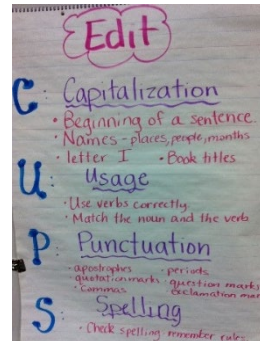 Edit
C: Capitalization
• Beginning of a sentence
• Names - places, people, months
• letter I • Book titles
U: Usage
• Use verbs correctly
• Match the noun and the verb
P: Punctuation
• apostrophes • periods
quotation marks • question marks
• Commas exclamation mar
S: Spelling
• Check spelling • remember rules